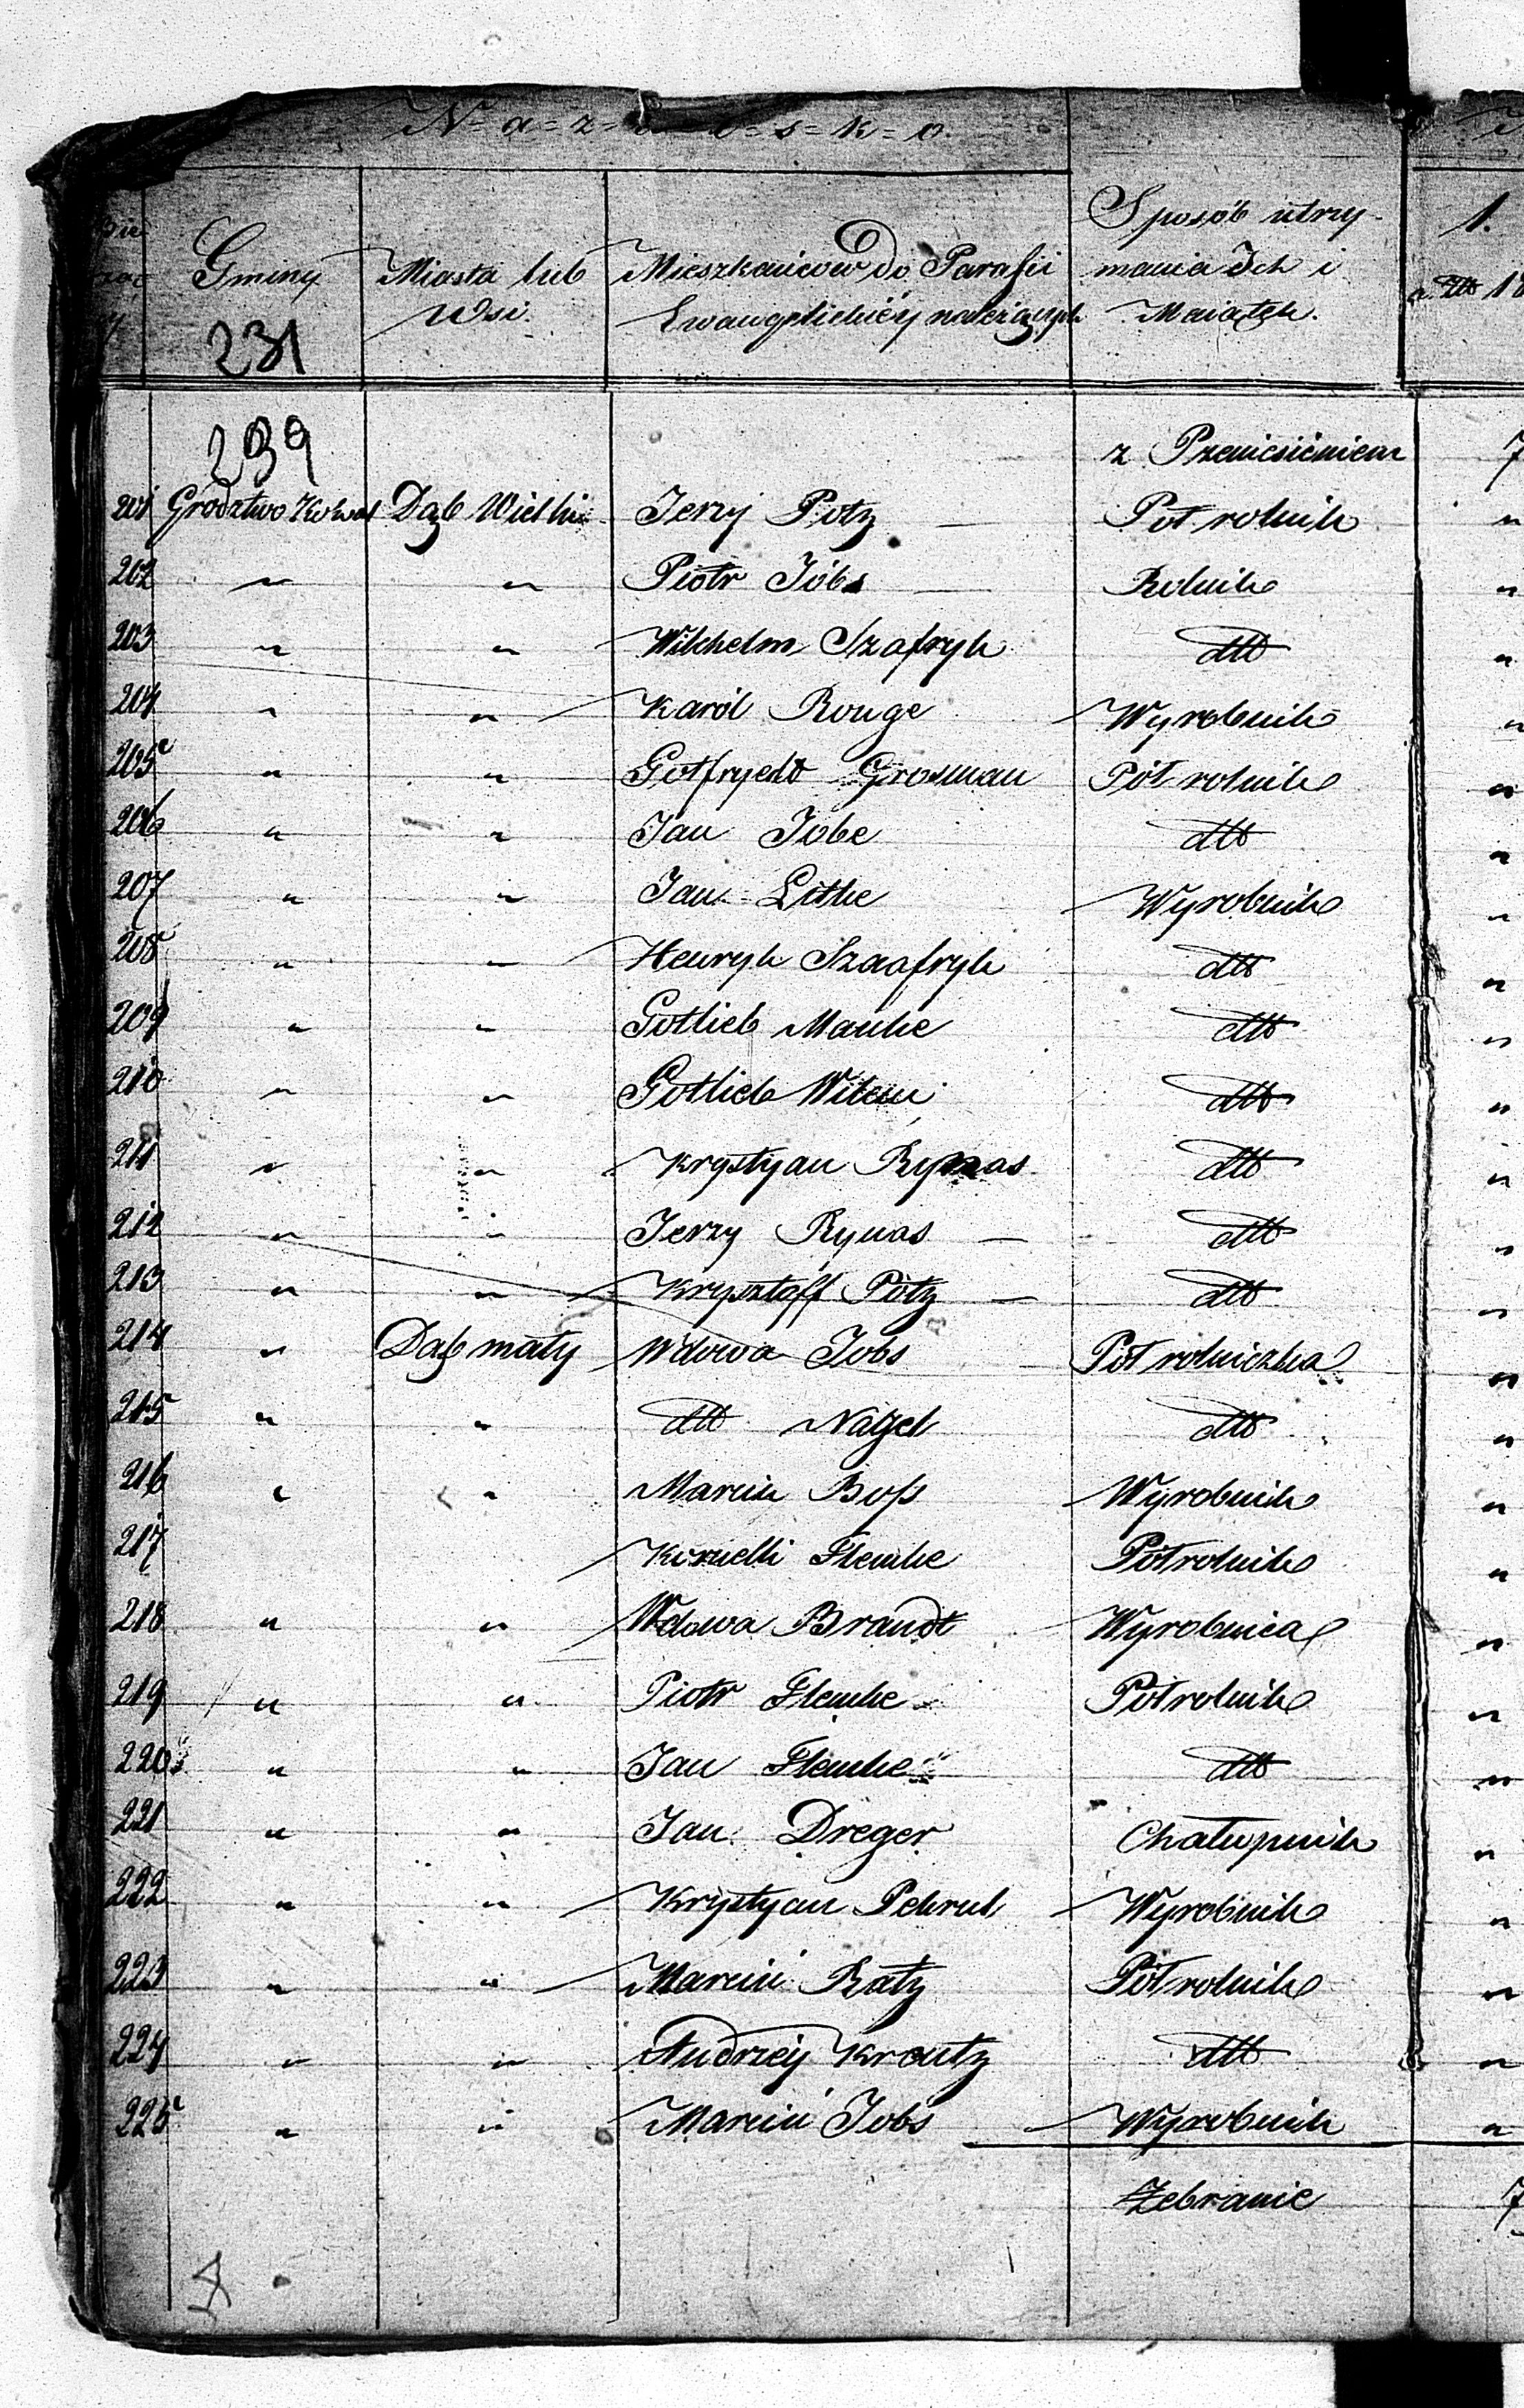 N=a=z=w=i=s=k=o
Gminy Miasta lub Mieszkańców do Parafii Sposób utrzy- 1.
Wsi. Ewangelickiéy należących mania Ich i
231 Maiątek.
239 z Przeniesieniem 7
201 Grodztwo Kowal Dąb Wielki Jerzy Potz Pół rolnik "
202 " " Piotr Jobs Rolnik "
203 " " Wilchelm Szafryk dtto "
204 " " Karól Rouge Wyrobnik "
205 " " Gotfrydt Grosman Pół rolnik "
206 " " Jan Jobe dtto "
207 " " Jan Litke Wyrobnik "
208 " " Henryk Szaafryk dtto "
209 " " Gotlieb Manke dtto "
210 " " Gotlieb dtto "
211 " " Krystyan Rynas dtto "
212 " " Jerzy Rynas dtto "
213 " " Krysztoff Potz dtto "
214 " Dąb mały Wdowa Jobs Pół rolniczka "
215 " " dtto Nagel dtto "
216 " " Marcin Boss Wyrobnik "
217 Kornelli Flemke Półrolnik "
218 " " Wdowa Brandt Wyrobnica "
219 " " Piotr Flemke Półrolnik "
220 " " Jan Flemke dtto "
221 " " Jan Dreger Chałupnik "
222 " " Krystyan Pekrul Wyrobnik "
223 " " Marcin Ratz Półrolnik "
224 " " Andrzéy Krautz dtto "
225 " " Marcin Jobs Wyrobnik "
Zebranie 7